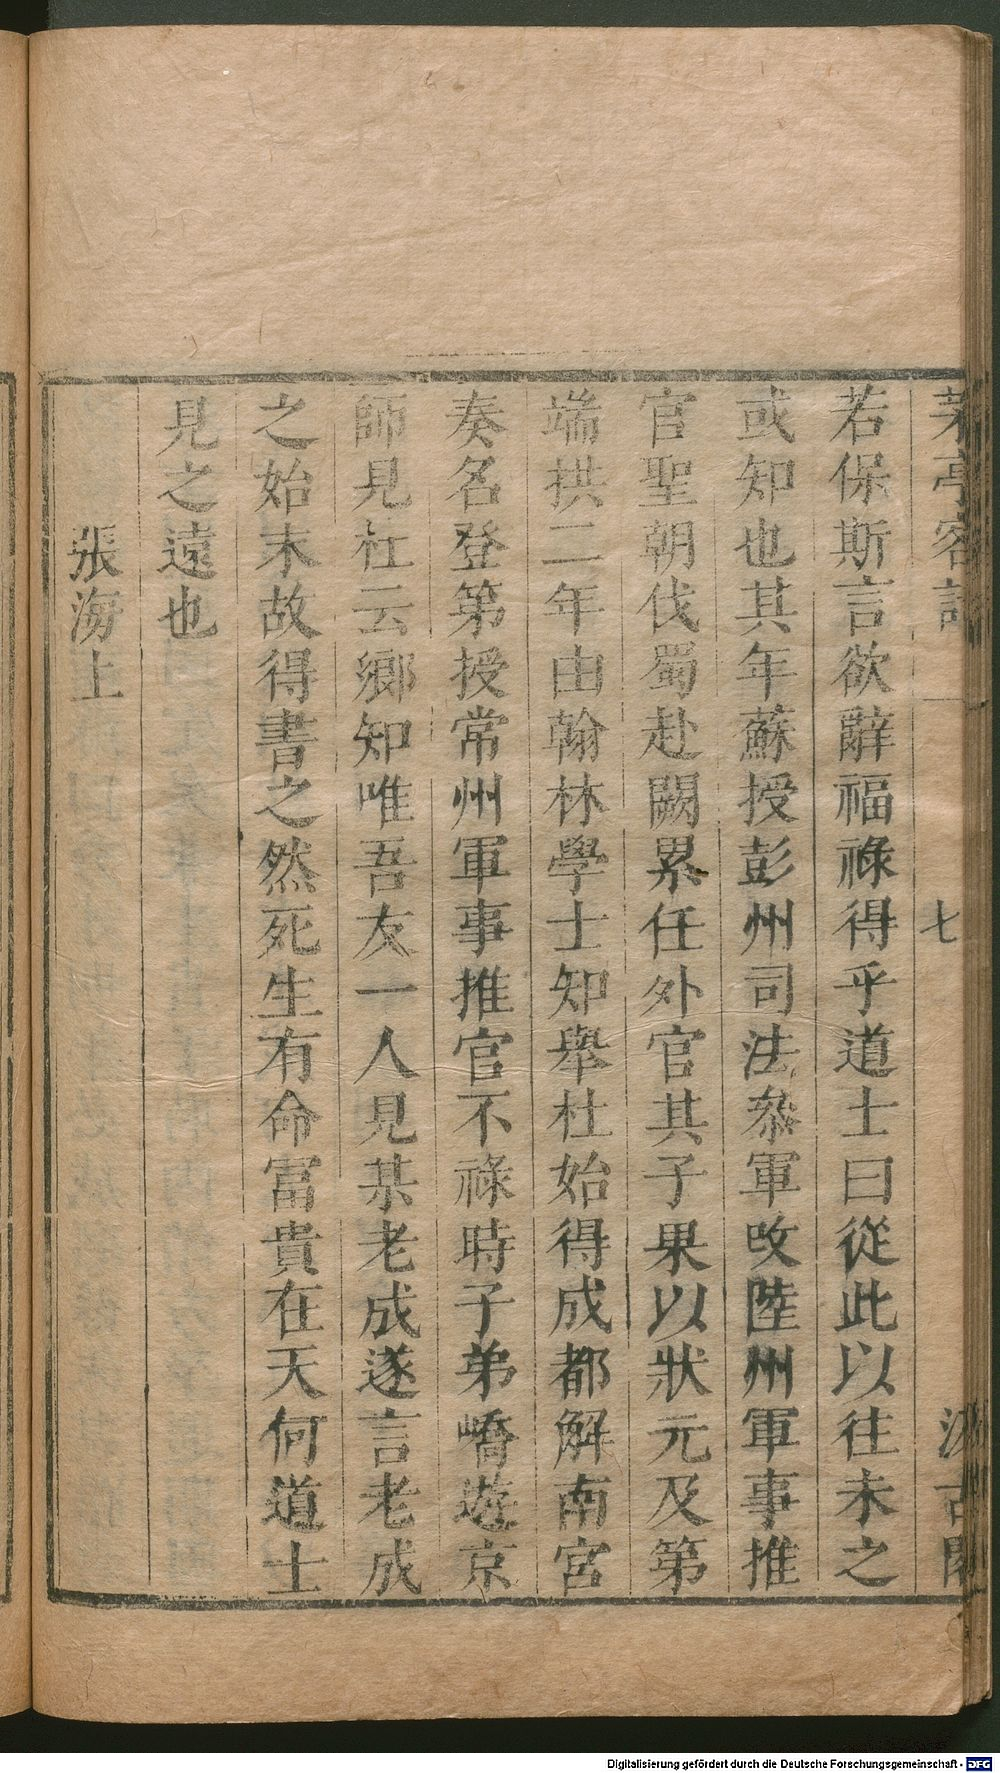 茅亭客話 一 七 汲古閣
若保斯言欲辭福祿得乎道士曰從此以往未之
或知也其年蘇授彭州司法叅軍改陸州軍事推
官聖朝伐蜀赴闕累任外官其子果以狀元及第
端拱二年由翰林學士知舉杜始得成都解南宮
奏名登第授常州軍事推官不祿時子弟嶠遊京
師見杜云鄉知唯吾友一人見某老成遂言老成
之始末故得書之然死生有命冨貴在天何道士
見之遠也
張海上
Digitalisierung gefördert durch die Deutsche Forschungsgemeinschaft - DFG